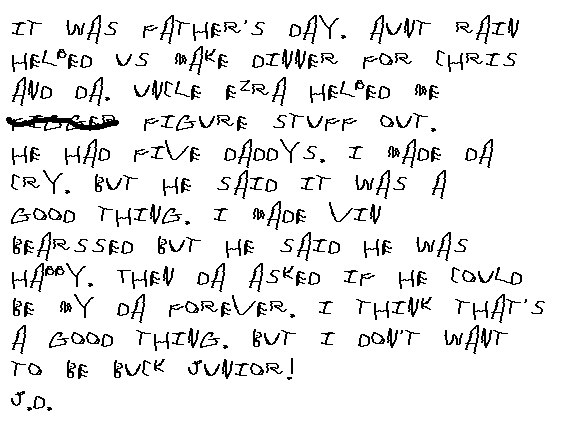 IT WAS FATHER'S DAY. AUNT RAIN
HELPED US MAKE DINNER FOR CHRIS
AND DA. UNCLE EZRA HELPED ME
FIGURE STUFF OUT.
HE HAD FIVE DADDYS. I MADE DA
CRY. BUT HE SAID IT WAS A
GOOD THING. I MADE VIN
BEARSSED BUT HE SAID HE WAS
HAPPY. THEN DA ASKED IF HE COULD
BE MY DA FOREVER. I THINK THAT'S
A GOOD THING. BUT I DON'T WANT
TO BE BUCK JUNIOR!
J.D.